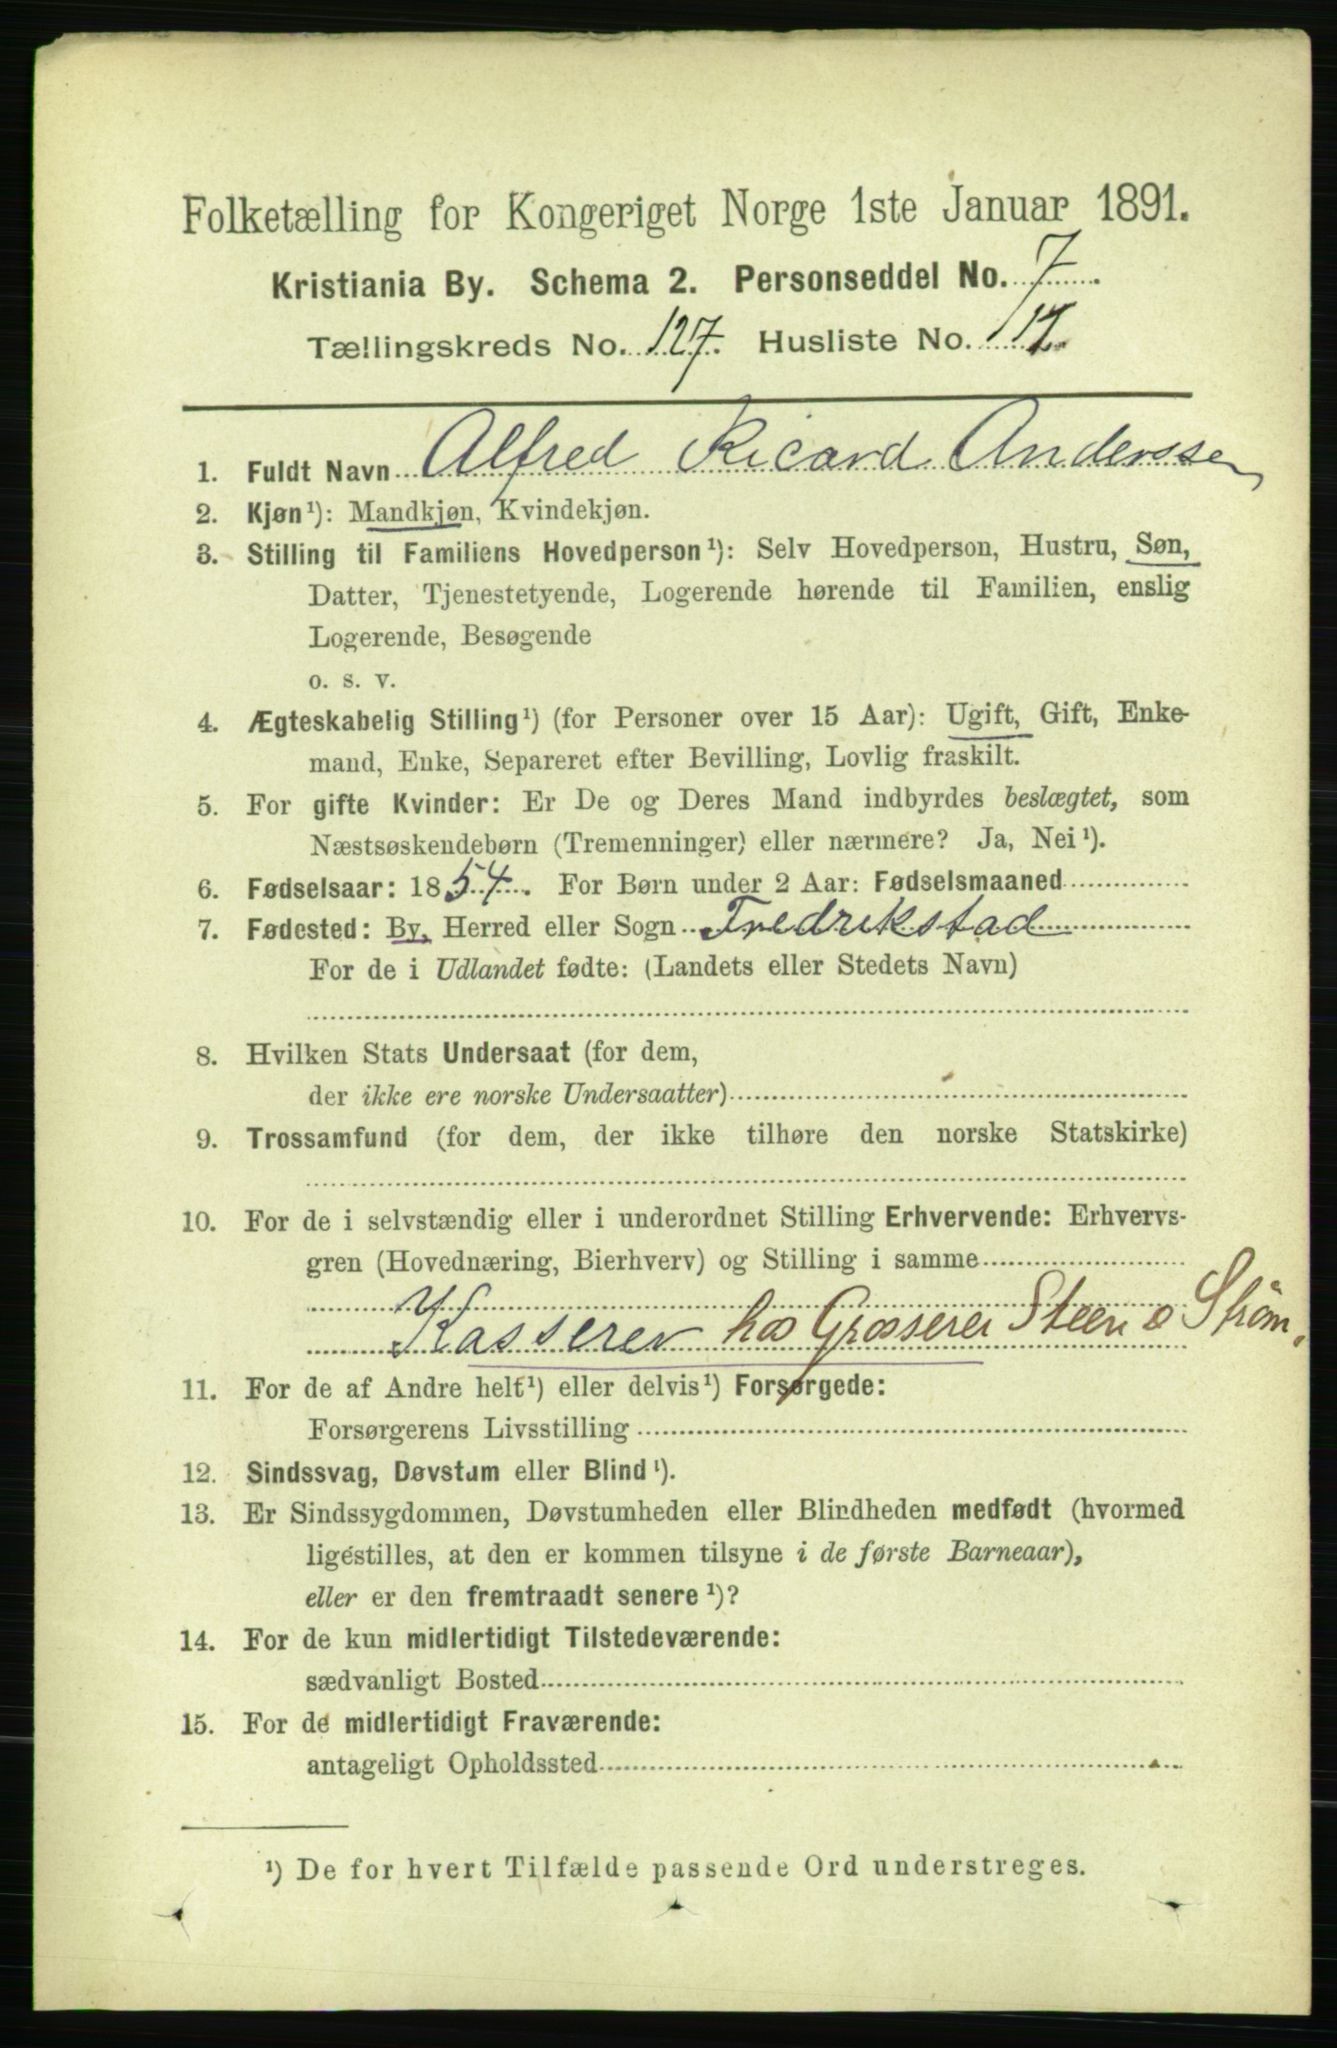 Folketælling for Kongeriget Norge 1ste Januar 1891.
Kristiania By. Schema 2. Personseddel No. 7.
Tællingskreds No. 127. Husliste No. 12.
1. Fuldt Navn Alfred Ricard Anderssen
2. Kjøn¹): Mandkjøn, Kvindekjøn.
3. Stilling til Familiens Hovedperson¹): Selv Hovedperson, Hustru, Søn,
Datter, Tjenestetyende, Logerende hørende til Familien, enslig
Logerende, Besøgende
o. s. v.
4. Ægteskabelig Stilling¹) (for Personer over 15 Aar): Ugift, Gift, Enke-
mand, Enke, Separeret efter Bevilling, Lovlig fraskilt.
5. For gifte Kvinder: Er De og Deres Mand indbyrdes beslægtet, som
Næstsøskendebørn (Tremenninger) eller nærmere? Ja, Nei¹).
6. Fødselsaar: 1854. For Børn under 2 Aar: Fødselsmaaned
7. Fødested: By, Herred eller Sogn Fredrikstad
For de i Udlandet fødte: (Landets eller Stedets Navn)
8. Hvilken Stats Undersaat (for dem,
der ikke ere norske Undersaatter)
9. Trossamfund (for dem, der ikke tilhøre den norske Statskirke)
10. For de i selvstændig eller i underordnet Stilling Erhvervende: Erhvervs-
gren (Hovednæring, Bierhverv) og Stilling i samme
Kasserer hos Grosserer Steen o Strøm.
11. For de af Andre helt¹) eller delvis¹) Forsørgede:
Forsørgerens Livsstilling
12. Sindssvag, Døvstum eller Blind¹).
13. Er Sindssygdommen, Døvstumheden eller Blindheden medfødt (hvormed
ligestilles, at den er kommen tilsyne i de første Barneaar),
eller er den fremtraadt senere¹)?
14. For de kun midlertidigt Tilstedeværende:
sædvanligt Bosted
15. For de midlertidigt Fraværende:
antageligt Opholdssted
¹) De for hvert Tilfælde passende Ord understreges.